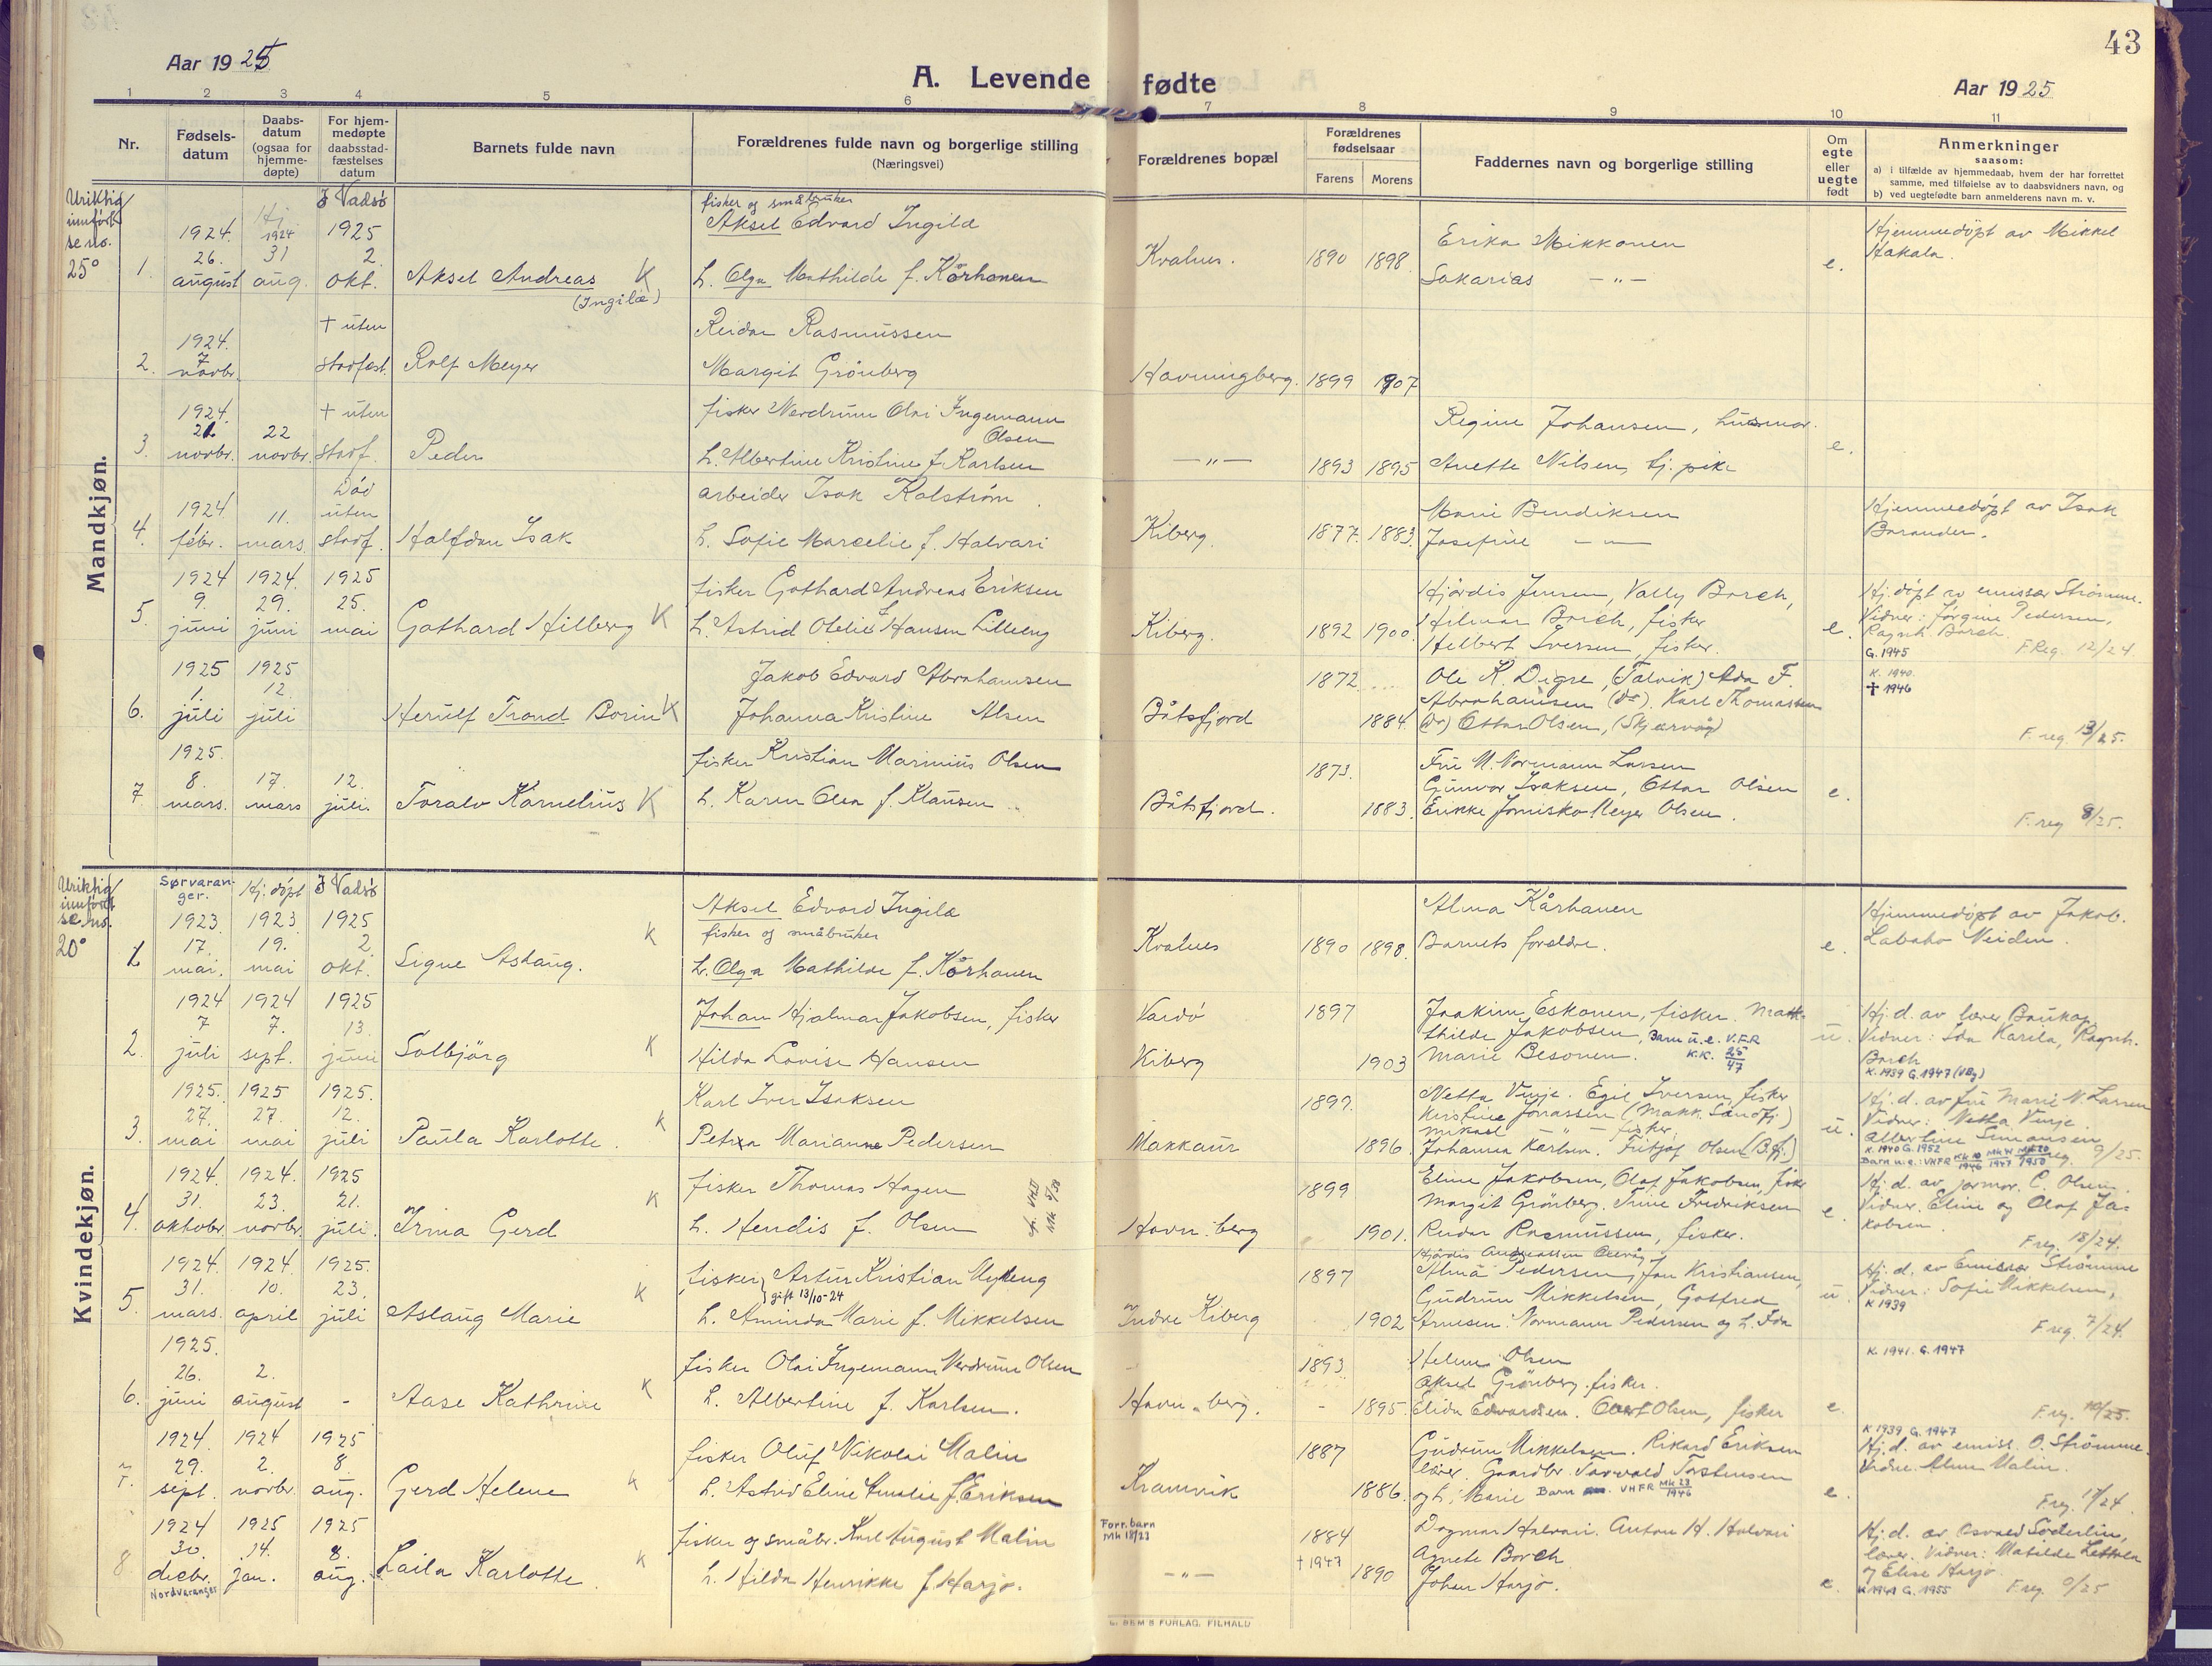 43
Aar 1925
A. Levende fødte
Aar 1925
1 2 3 4 5 6 7 8 9 10 11
Nr.
Fødsels-
datum
Daabs-
datum
(ogsaa for
hjemme-
døpte)
For hjem-
medøpte
daabsstad-
fæstelses
datum
Barnets fulde navn
Forældrenes fulde navn og borgerlige stilling
(Næringsvei)
Forældrenes bopæl
Forældrenes
fødselsaar
Farens Morens
Faddernes navn og borgerlige stilling
Om
egte
eller
uegte
født
Anmerkninger
saasom:
a) i tilfælde av hjemmedaab, hvem der har forrettet
samme, med tilføielse av to daabsvidners navn, og
b) ved uegtefødte barn anmelderens navn m. v.
Mandkjøn.
Uriktig
innført
se no.
25°
1.
1924.
26.
august
Hj
1924
31
aug.
I Vadsø
1925
2.
okt.
Aksel Andreas K
(Ingilæ)
fisker og småbruker
Aksel Edvard Ingilæ
h. Olga Mathilde f. Kårhonen
Kvalnes.
1890 1898.
Erika Mikkonen
Sakarias — „ —
e.
Hjemmedöpt av Mikkel
Hakala.
2.
1924.
7
novbr.
† uten
stadfest.
Rolf Meyer
Reidar Rasmussen
Margit Grönberg
Havningberg.
1899 1907
3.
1924.
21.
novbr.
22
novbr.
† uten
stadf.
Peder
fisker Nerdrum Olai Ingemann
Olsen
h. Albertine Kristine f. Karlsen
— „ —
1893 1895
Regine Johansen, husmor.
Anette Nilsen, tj. pike
e.
4.
1924
febr.
11.
mars.
Död
uten
stadf.
Halfdan Isak
arbeider Isak Kalström
h. Sofie Marcelie f. Halvari
Kiberg.
1877. 1883.
Marie Bendiksen
Josefine — „ —
Hjemmedöpt av Isak
Barander.
5.
1924
9.
juni
1924.
29.
juni
1925
25.
mai
Gothard Hilberg K
fisker Gothard Andreas Eriksen
h. Astrid Otelie f. Hansen Lilleeng
Kiberg.
1892 1900.
Hjördis Jensen, Vally Borch,
Hilmar Borch, fisker
Helbert Iversen, fisker.
e.
Hj. döpt av emissær Strömme.
Vidner: Jörgine Pedersen,
Ragnh. Borch.
G. 1945 F.Reg. 12/24.
6.
1925
1.
juli
1925
12.
juli
Herulf Trond Borin K
Jakob Edvard Abrahamsen
Johanna Kristine Olsen
Båtsfjord
1872
1884.
Ole K. Digre, (Talvik) Ada F.
Abrahamsen (do). Karl Thomassen
(do) Ottar Olsen, (Skjervöy)
K. 1940.
† 1946
F. reg. 13/25.
7
1925.
8.
mars.
17.
mars
12.
juli.
Toralv Kornelius K
fisker Kristian Marinius Olsen
h. Karen Olea f. Klausen
Båtsfjord.
1873.
1883.
Fru M. Normann Larsen
Gunvor Isaksen, Ottar Olsen
e.
F. reg 8/25.
Kvindekjøn.
Uriktig
innført
se no.
20°
1
Sørvaran-
ger.
1923
17.
mai.
Hj. döpt
1923
19.
mai
I Vadsö
1925
2
okt.
Signe Aslaug.
K
Aksel Edvard Ingilæ
fisker og småbruker
h. Olga Mathilde f. Kårhonen
Kvalnes
1890 1898.
Alma Kårhanen
Barnets forældre.
e.
Hjemmedöpt av Jakob.
Labaho Neiden.
2.
1924
7
juli
1924
7.
sept.
1925
13.
juni
Solbjörg
K
Johan Hjalmar Jakobsen, fisker
Hilda Lovise Hansen
Vardö
Kiberg
1897
1903
Joakim Eskonen, fisker. Mat-
hilde Jakobsen, Barn u.e. V.F.R
Marie Besonen. K.K. 25/47
u.
Hj. d. av lærer Baukop
Vidner: Ida Karila, Ragnh.
Borch
K. 1939 G. 1947 (VBg)
3.
1925.
27.
mai
1925
27.
mai
1925
12.
juli
Paula Karlotte.
K
Karl Iver Isaksen
Petra Marianne Pedersen
Makkaur
1897.
1896.
Netta Vinje. Egil Iversen, fisker
Kristine Jonassen (Makk. Sandfj)
Mikael — „ — fisker.
Johanna Karlsen. Fritjof Olsen (B.fj.)
u.
Hj. d. av fru Marie N. Larsen
Vidner: Netta Vinje.
Albertine Simonsen
K. 1940 G. 1952
9/25.
4.
1924.
31.
oktobr.
1924.
23.
novbr.
1925
21.
juli.
Irma Gerd
K
fisker Thomas Hagen
h. Hendis f. Olsen
Havn.berg
1899
1901.
Eline Jakobsen, Olaf Jakobsen, fisker
Margit Grönberg. Trine Fredriksen
Reidar Rasmussen, fisker.
e.
Hj. d. av jormor. C. Olsen.
Vidner. Eline og Olaf Ja-
kobsen.
F reg. 18/24.
5.
1924.
31.
mars.
1924.
10.
april
1925.
23.
juli
Aslaug Marie
K
fisker Artur Kristian Myreng
gift 13/10-24
h. Aminda Marie f. Mikkelsen
Indre Kiberg
1897
1902
Alma Pedersen, Jon Kristiansen,
Gudrun Mikkelsen, Gotfred
Arnesen. Normann Pedersen og h. Ida
u.
Hj. d. av Emissær Strömme
Vidner: Sofie Mikkelsen,
K 1939
F reg. 7/24.
6.
1925.
26.
juni
2.
august
-
Aase Kathrine
K
fisker Olai Ingemann Nerdrum Olsen
h. Albertine f. Karlsen.
Havn.berg.
1893
1895.
Helene Olsen
Aksel Grönberg. fisker.
Elida Edvardsen. Olsen, fisker
e.
K. 1941. G. 1947
F. reg. 10/25.
7.
1924.
29.
sept.
1924
2.
novbr.
1925
8.
aug.
Gerd Helene
K
fisker Oluf Nikolai Malin
h. Astrid Eline Amalie f. Eriksen
Kramvik
1887
1886.
Gudrun Mikkelsen. Rikard Eriksen
lærer. Gaardbr. Torvald Torstensen
og h. Marie Barn VHFR Mk 23/1946
e.
K 1939 G. 1947
Hj. d. av emiss. O. Strömme.
Vidne. Alma Malin.
F reg. 17/24.
8
1924
30.
decbr.
Nordvaranger
1925
14.
jan.
1925
8.
aug.
Laila Karlotte
K
fisker og småbr. Karl August Malin
h. Hilda Henrikke f. Harjo.
Forr. barn
Mk 18/23
— „ —
1884
† 1947
1890
Dagmar Halvari. Anton H. Halvari
Agnete Borch
Johan Harjo.
e.
Hj. d. av Osvald Söderlin,
lærer. Vidner: Matilde
og Elise Harjo.
K 1941 G. 1955 F reg. 0/25
FORLAG. FILHALD